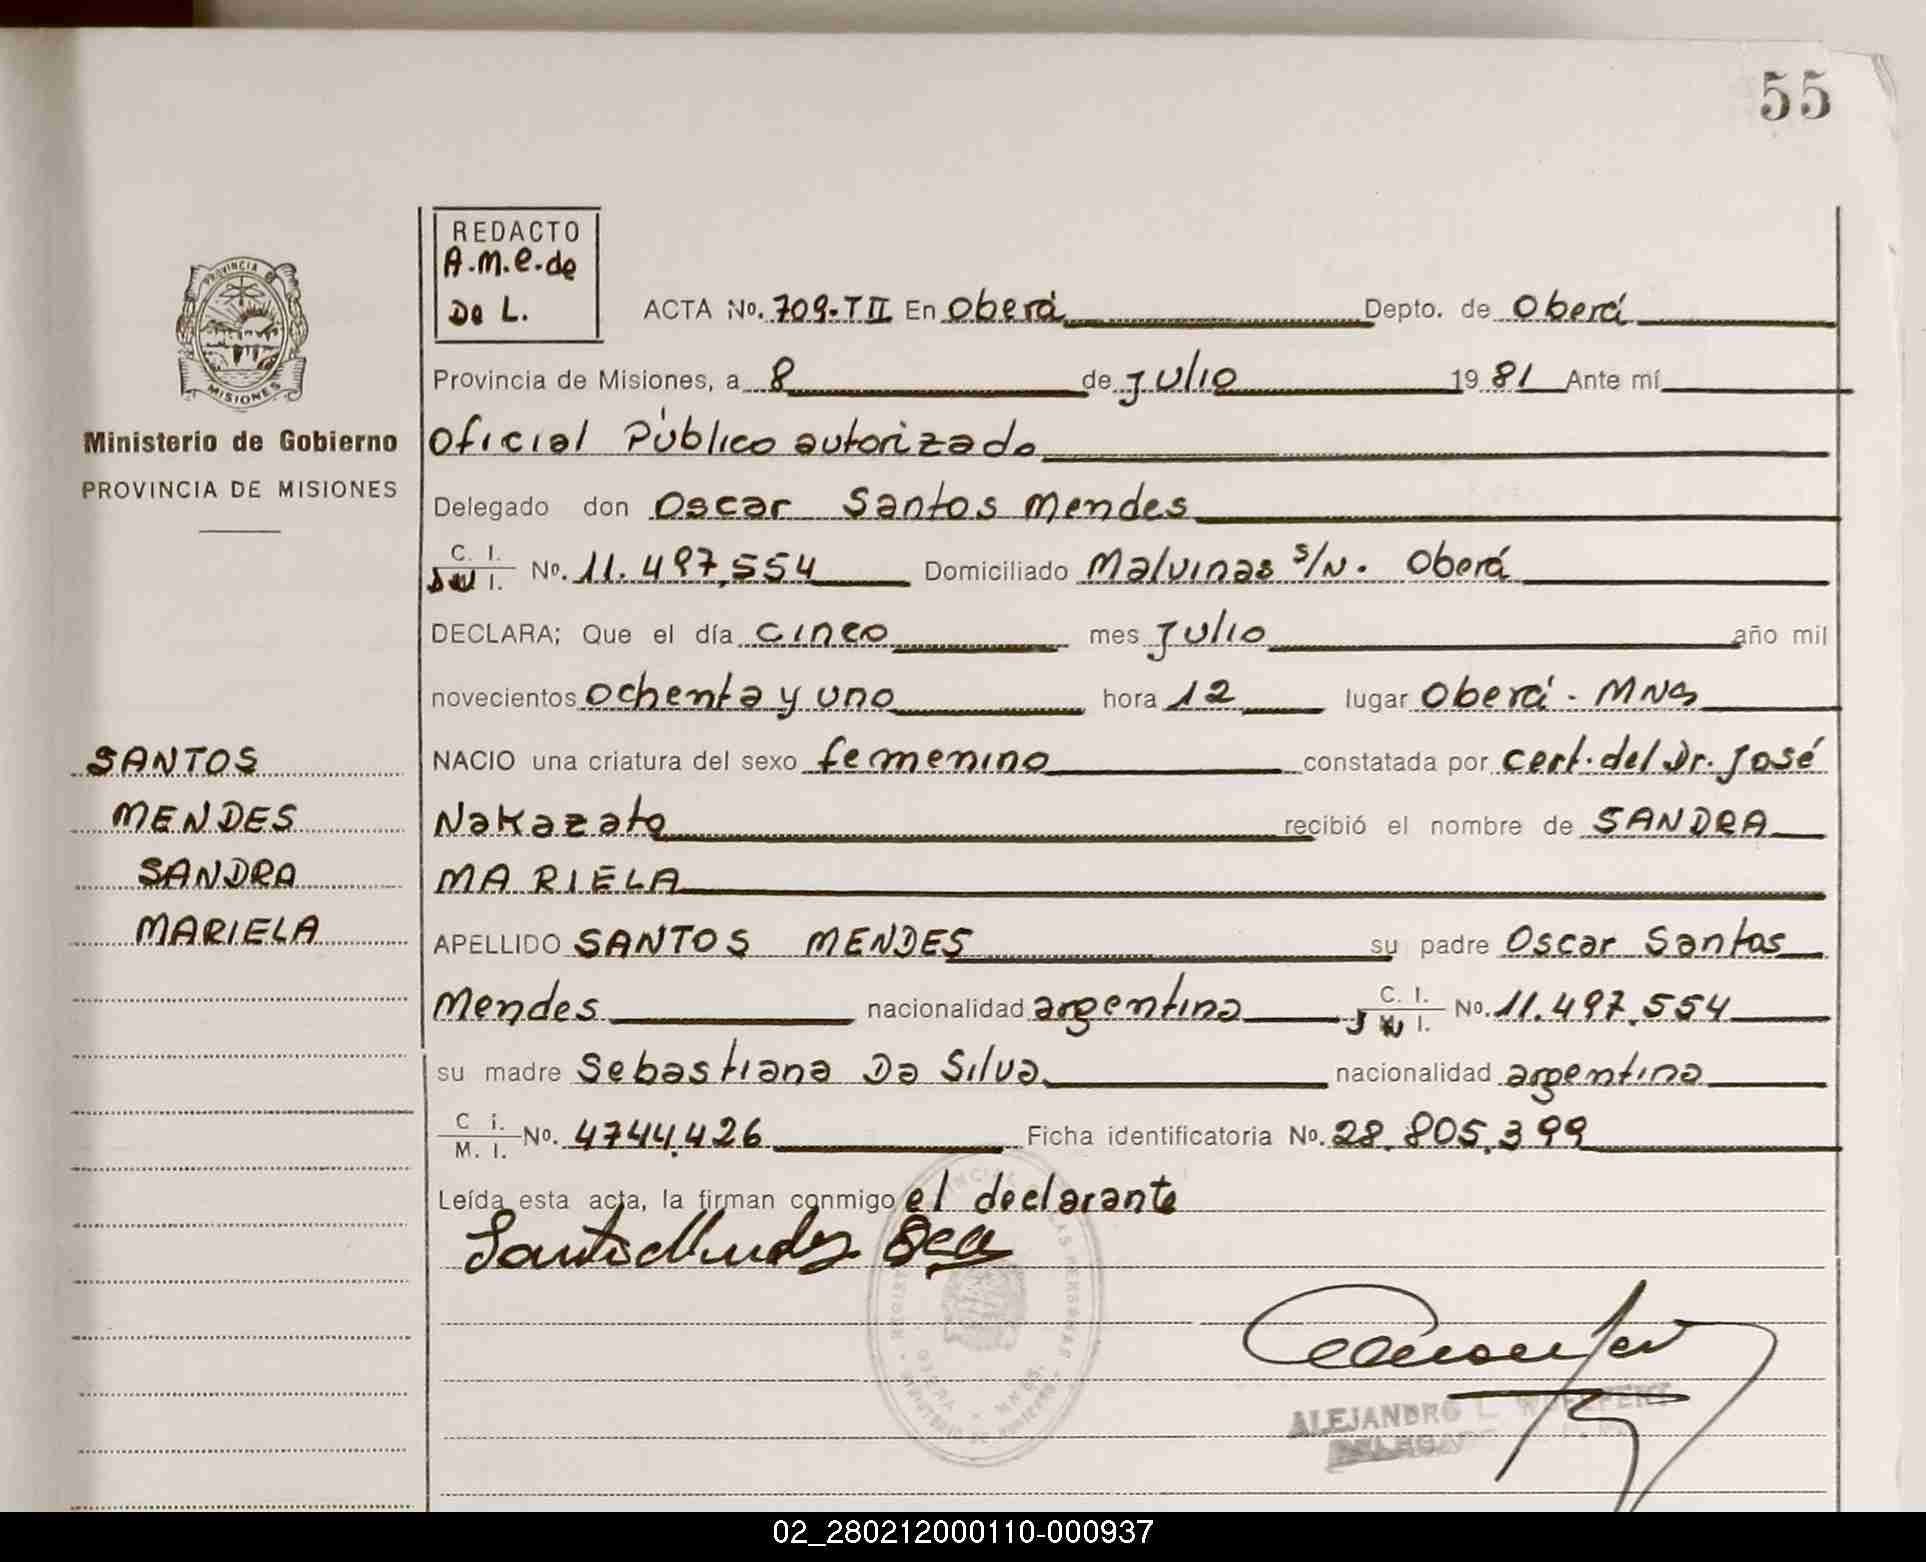 55
REDACTO
A.M.E. de
Da L.
ACTA No. 709-TII En Oberá Depto. de Oberá
PROVINCIA DE
MISIONES
Provincia de Misiones, a 8 de Julio 1981 Ante mí
Ministerio de Gobierno
Oficial Público autorizado
PROVINCIA DE MISIONES
Delegado don Oscar Santos Mendes
C. I. No. 11.497.554 Domiciliado Malvinas s/N. Oberá
DECLARA; Que el día cinco mes Julio año mil
novecientos ochenta y uno hora 12 lugar Oberá - MNES
SANTOS
NACIO una criatura del sexo femenino constatada por cert. del Dr. José
MENDES
Nakazato recibió el nombre de SANDRA
SANDRA
MARIELA
MARIELA
APELLIDO SANTOS MENDES su padre Oscar Santos
Mendes nacionalidad argentina C. I. No. 11.497.554
su madre Sebastiana Da Silva nacionalidad argentina
C. I. / M. I. No. 4744.426 Ficha identificatoria No. 28.805.399
Leída esta acta, la firman conmigo el declarante
Santos Mendes
ALEJANDRO L.
DELEGADO
02_280212000110-000937